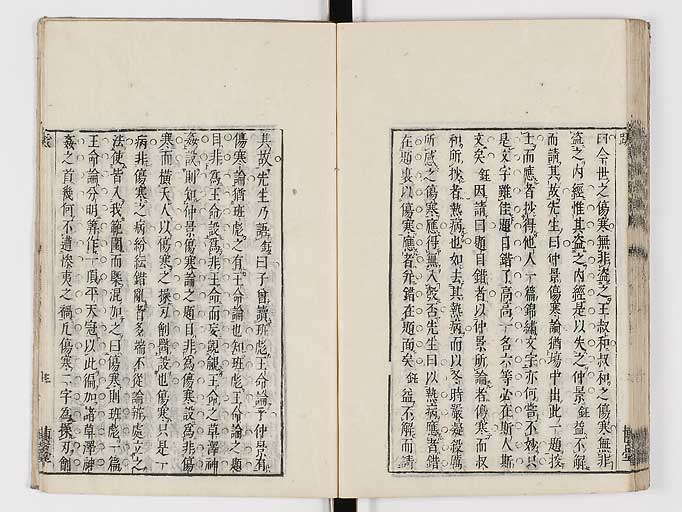 曰今世之傷寒無非盜之王叔和叔和之傷寒無非
盜之內經惟其盜之內經是以失之仲景鉦益不解
而請其故先生曰仲景傷寒論猶場中出此一題按
士而應者抄得他人一篇錦繡文字亦何嘗不妙只
是文字雖佳題目錯了高高一名六等必在斯人斯
文矣鉦因請曰題目錯者以仲景所論者傷寒而叔
和所抄者熱病也如去其熱病而以冬時嚴是殺厲
所感之傷寒應得無入彀否先生曰以熱病應者錯
在題裏以傷寒應者弁錯在題面矣鉦益不解而請
其故先生乃語鉦曰子曾讀班彪王命論乎仲景有
傷寒論猶班彪之有王命論也知班彪王命論之題
目非爲王命設爲非王命而妄覬覦王命之草澤神
姦設則知仲景傷寒論之題目非爲傷寒設爲非傷
寒而橫夭人以傷寒之操刃劊醫設也傷寒只是一
病非傷寒之病紛紜錯亂者多端不從論辨處立之
法使皆入我範圍而槩混加之曰傷寒則班彪一篇
王命論分明算作一頂平天冠以此徧加諸草澤神
姦之首幾何不遺殃夷之禍凡傷寒二字爲操刃劊